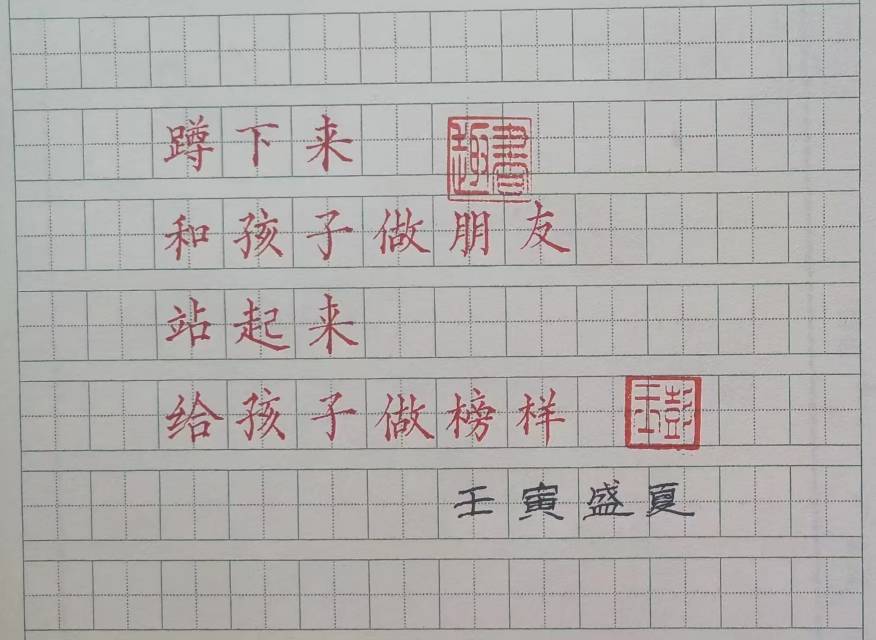 蹲下来
書趣
和孩子做朋友
站起来
给孩子做榜样
彭玉
壬寅盛夏